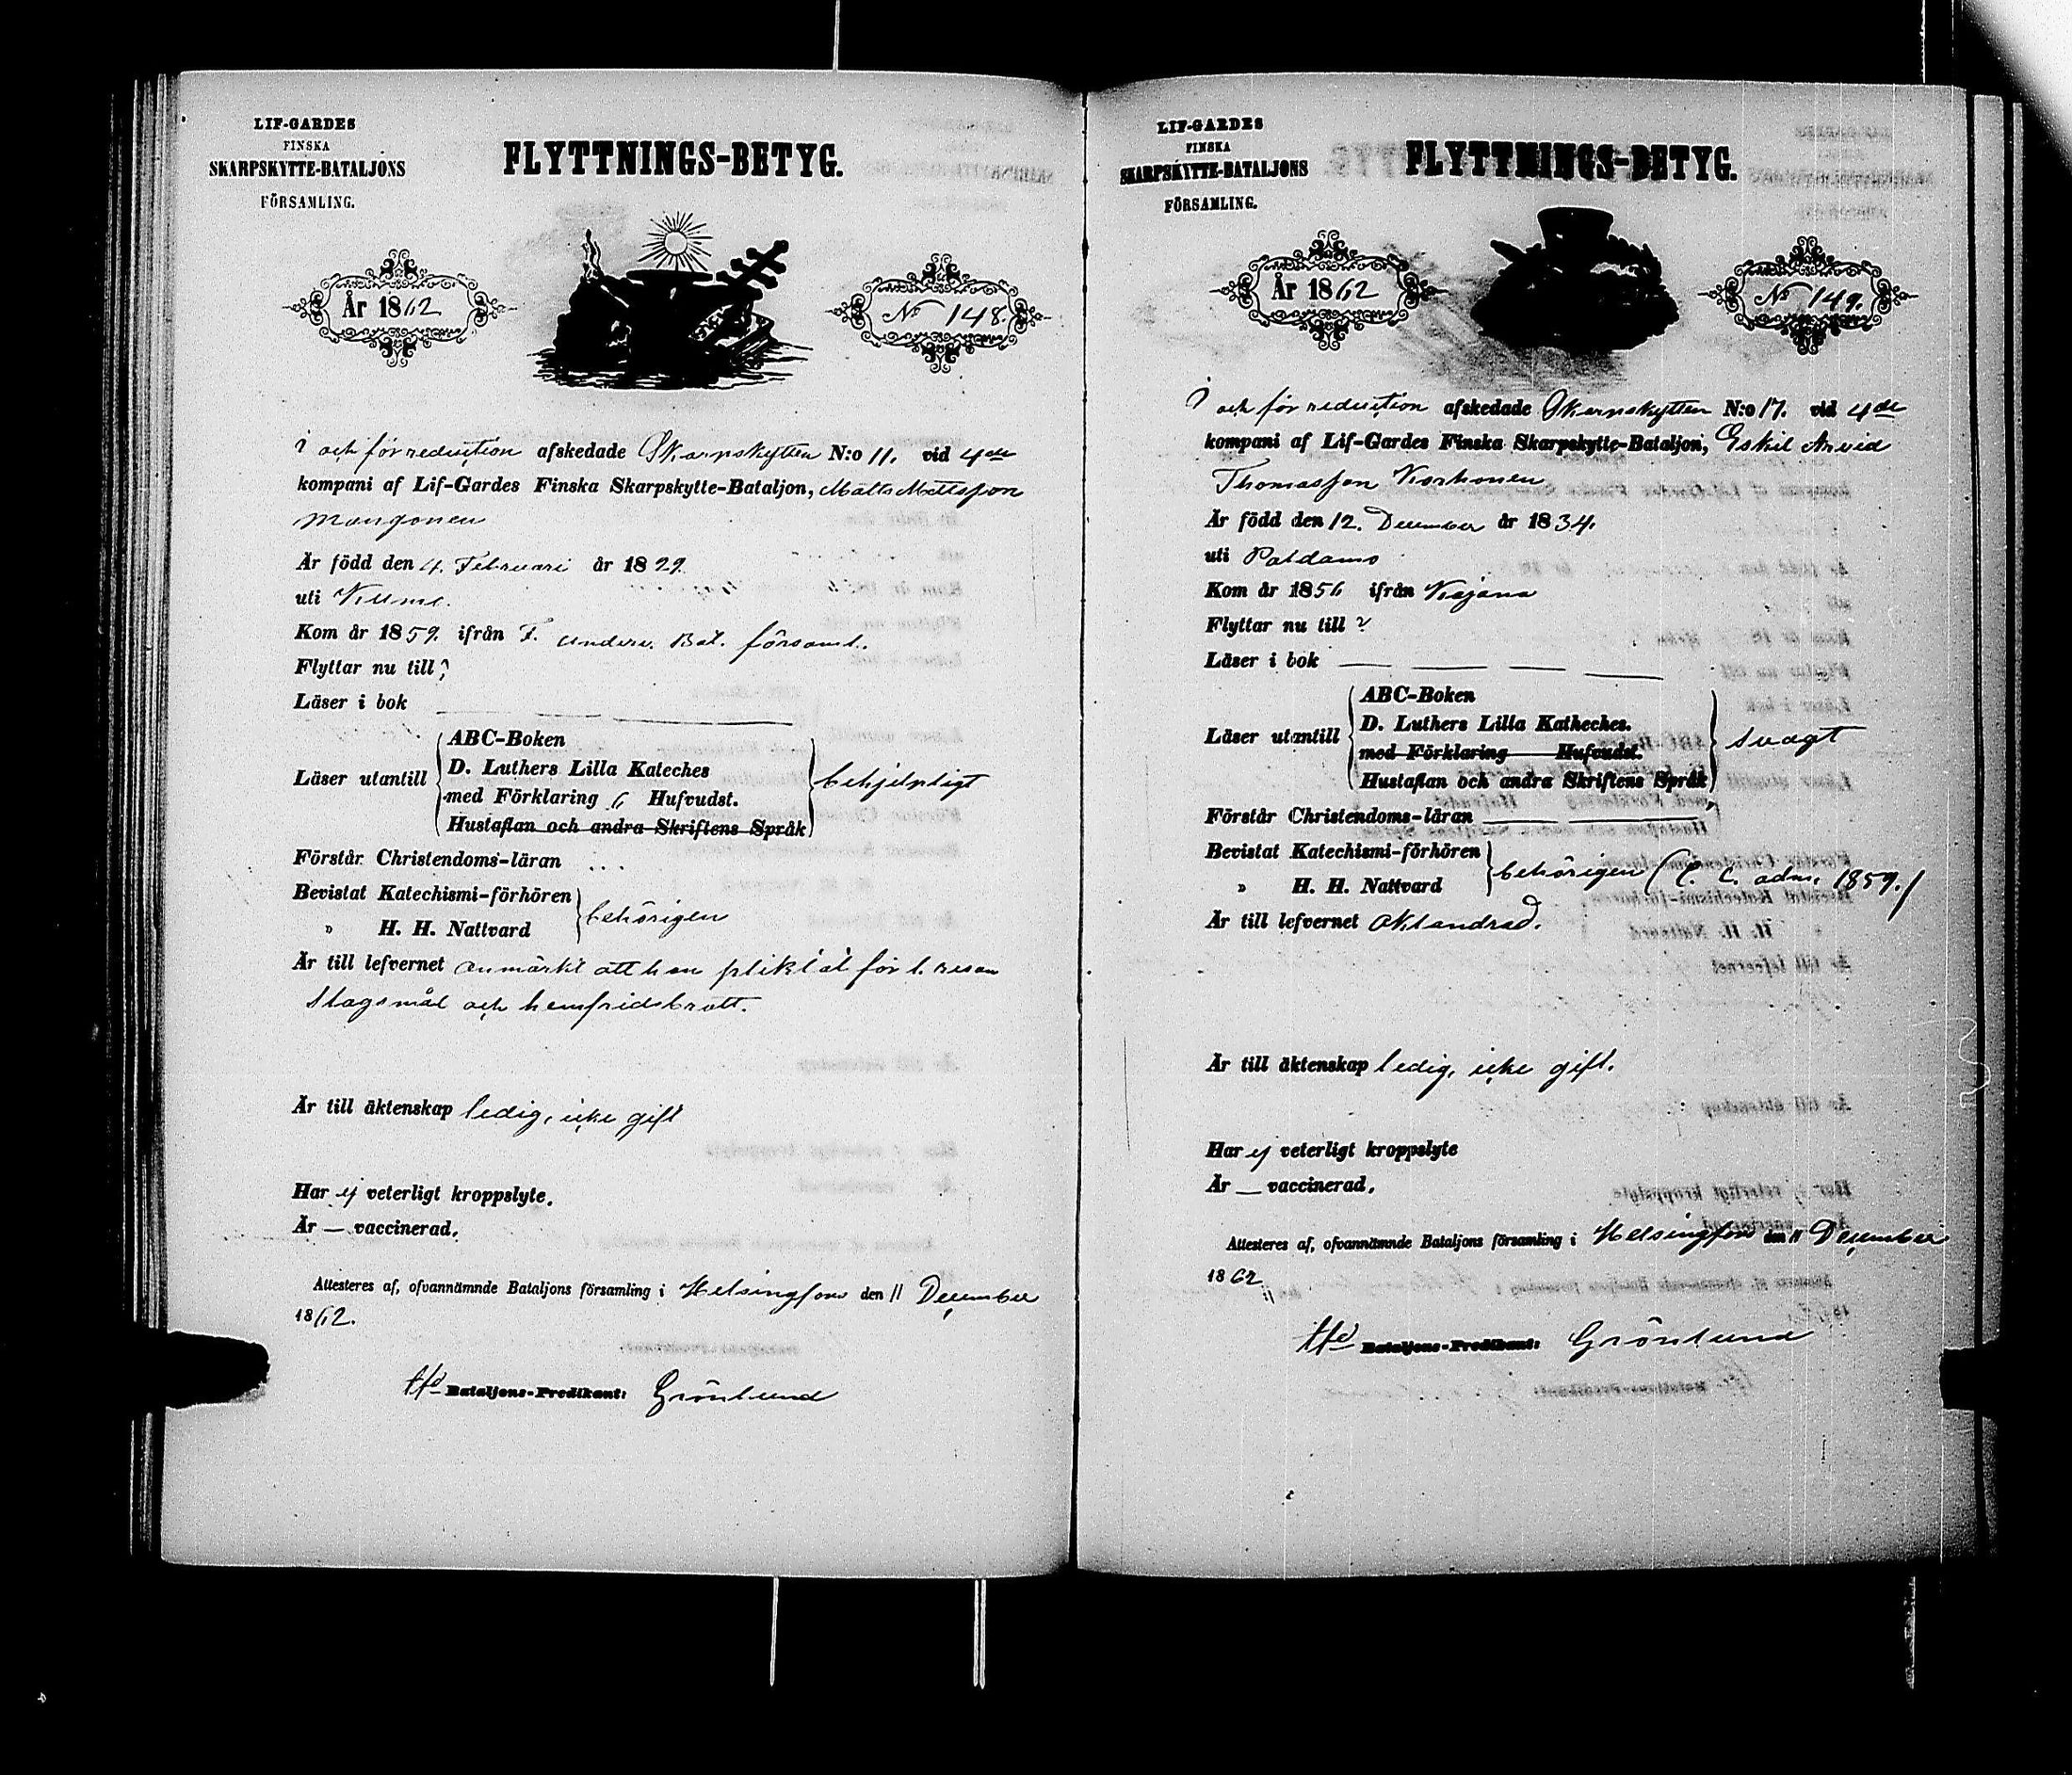 LIF-GARDES
FINSKA
SKARPSKYTTE-BATALJONS
FÖRSAMLING.
FLYTTNINGS-BETYG.
År 1862
No 148.
I och för reduction afskedade Skarpskytten N:o 11. vid 4de
kompani af Lif-Gardes Finska Skarpskytte-Bataljon, Matts Mattsson
Mangonen
Är född den 4. Februari år 1829.
uti
Kom år 1859. ifrån F. Underv. Bat. församl.
Flyttar nu till ?
Läser i bok
Läser utantill
ABC-Boken
D. Luthers Lilla Kateches
med Förklaring 6 Hufvudst.
Hustaflan och andra Skriftens Språk
behjelpligt
Förstår Christendoms-läran
Bevistat Katechismi-förhören
" H. H. Nattvard
behörigen
Är till lefvernet anmärkt att han pliktat för 1. resan
slagsmål och hemfridsbrott.
Är till äktenskap ledig, icke gift
Har ej veterligt kroppslyte.
Är — vaccinerad.
Attesteras af, ofvannämnde Bataljons församling i Helsingfors den 11 December
1862.
Bataljons-Predikant: Grönlund
LIF-GARDES
FINSKA
SKARPSKYTTE-BATALJONS
FÖRSAMLING.
FLYTTNINGS-BETYG.
År 1862
No 149.
I och för reduction afskedade Skarpskytten N:o 17. vid 4de
kompani af Lif-Gardes Finska Skarpskytte-Bataljon, Eskil Arvid
Thomasson Korhonen
Är född den 12. December år 1834.
uti Paldamo
Kom år 1856 ifrån Kajana
Flyttar nu till ?
Läser i bok
Läser utantill
ABC-Boken
D. Luthers Lilla Katheches.
med Förklaring Hufvudst.
Hustaflan och andra Skriftens Språk
svagt
Förstår Christendoms-läran
Bevistat Katechismi-förhören
" H. H. Nattvard
behörigen (C. C. adm. 1859./
Är till lefvernet oklandrad.
Är till äktenskap ledig, icke gift.
Har ej veterligt kroppslyte
Är — vaccinerad.
Attesteres af, ofvannämnde Bataljons församling i Helsingfors den 11 December
1862
Bataljons-Predikant: Grönlund